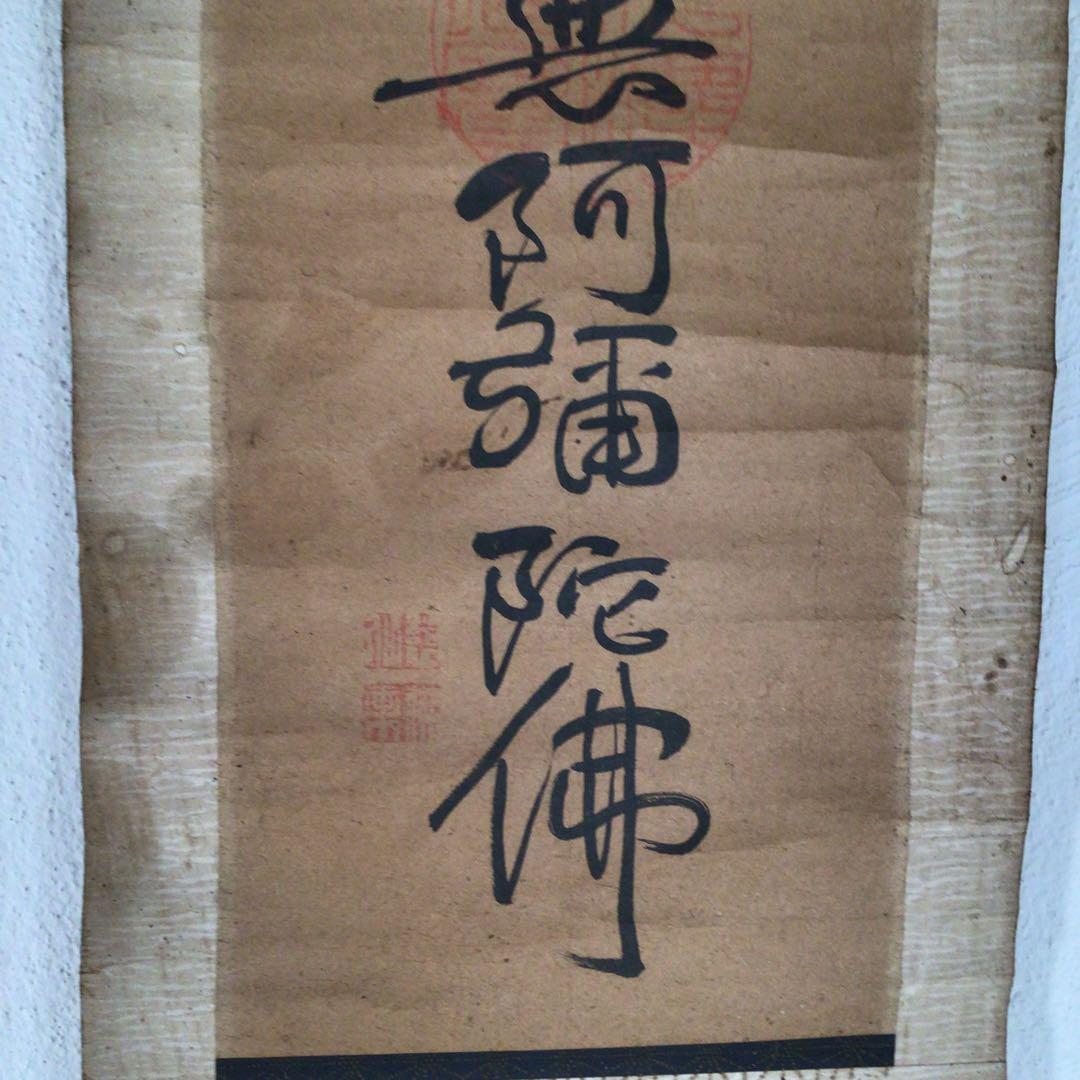 無阿彌陀佛